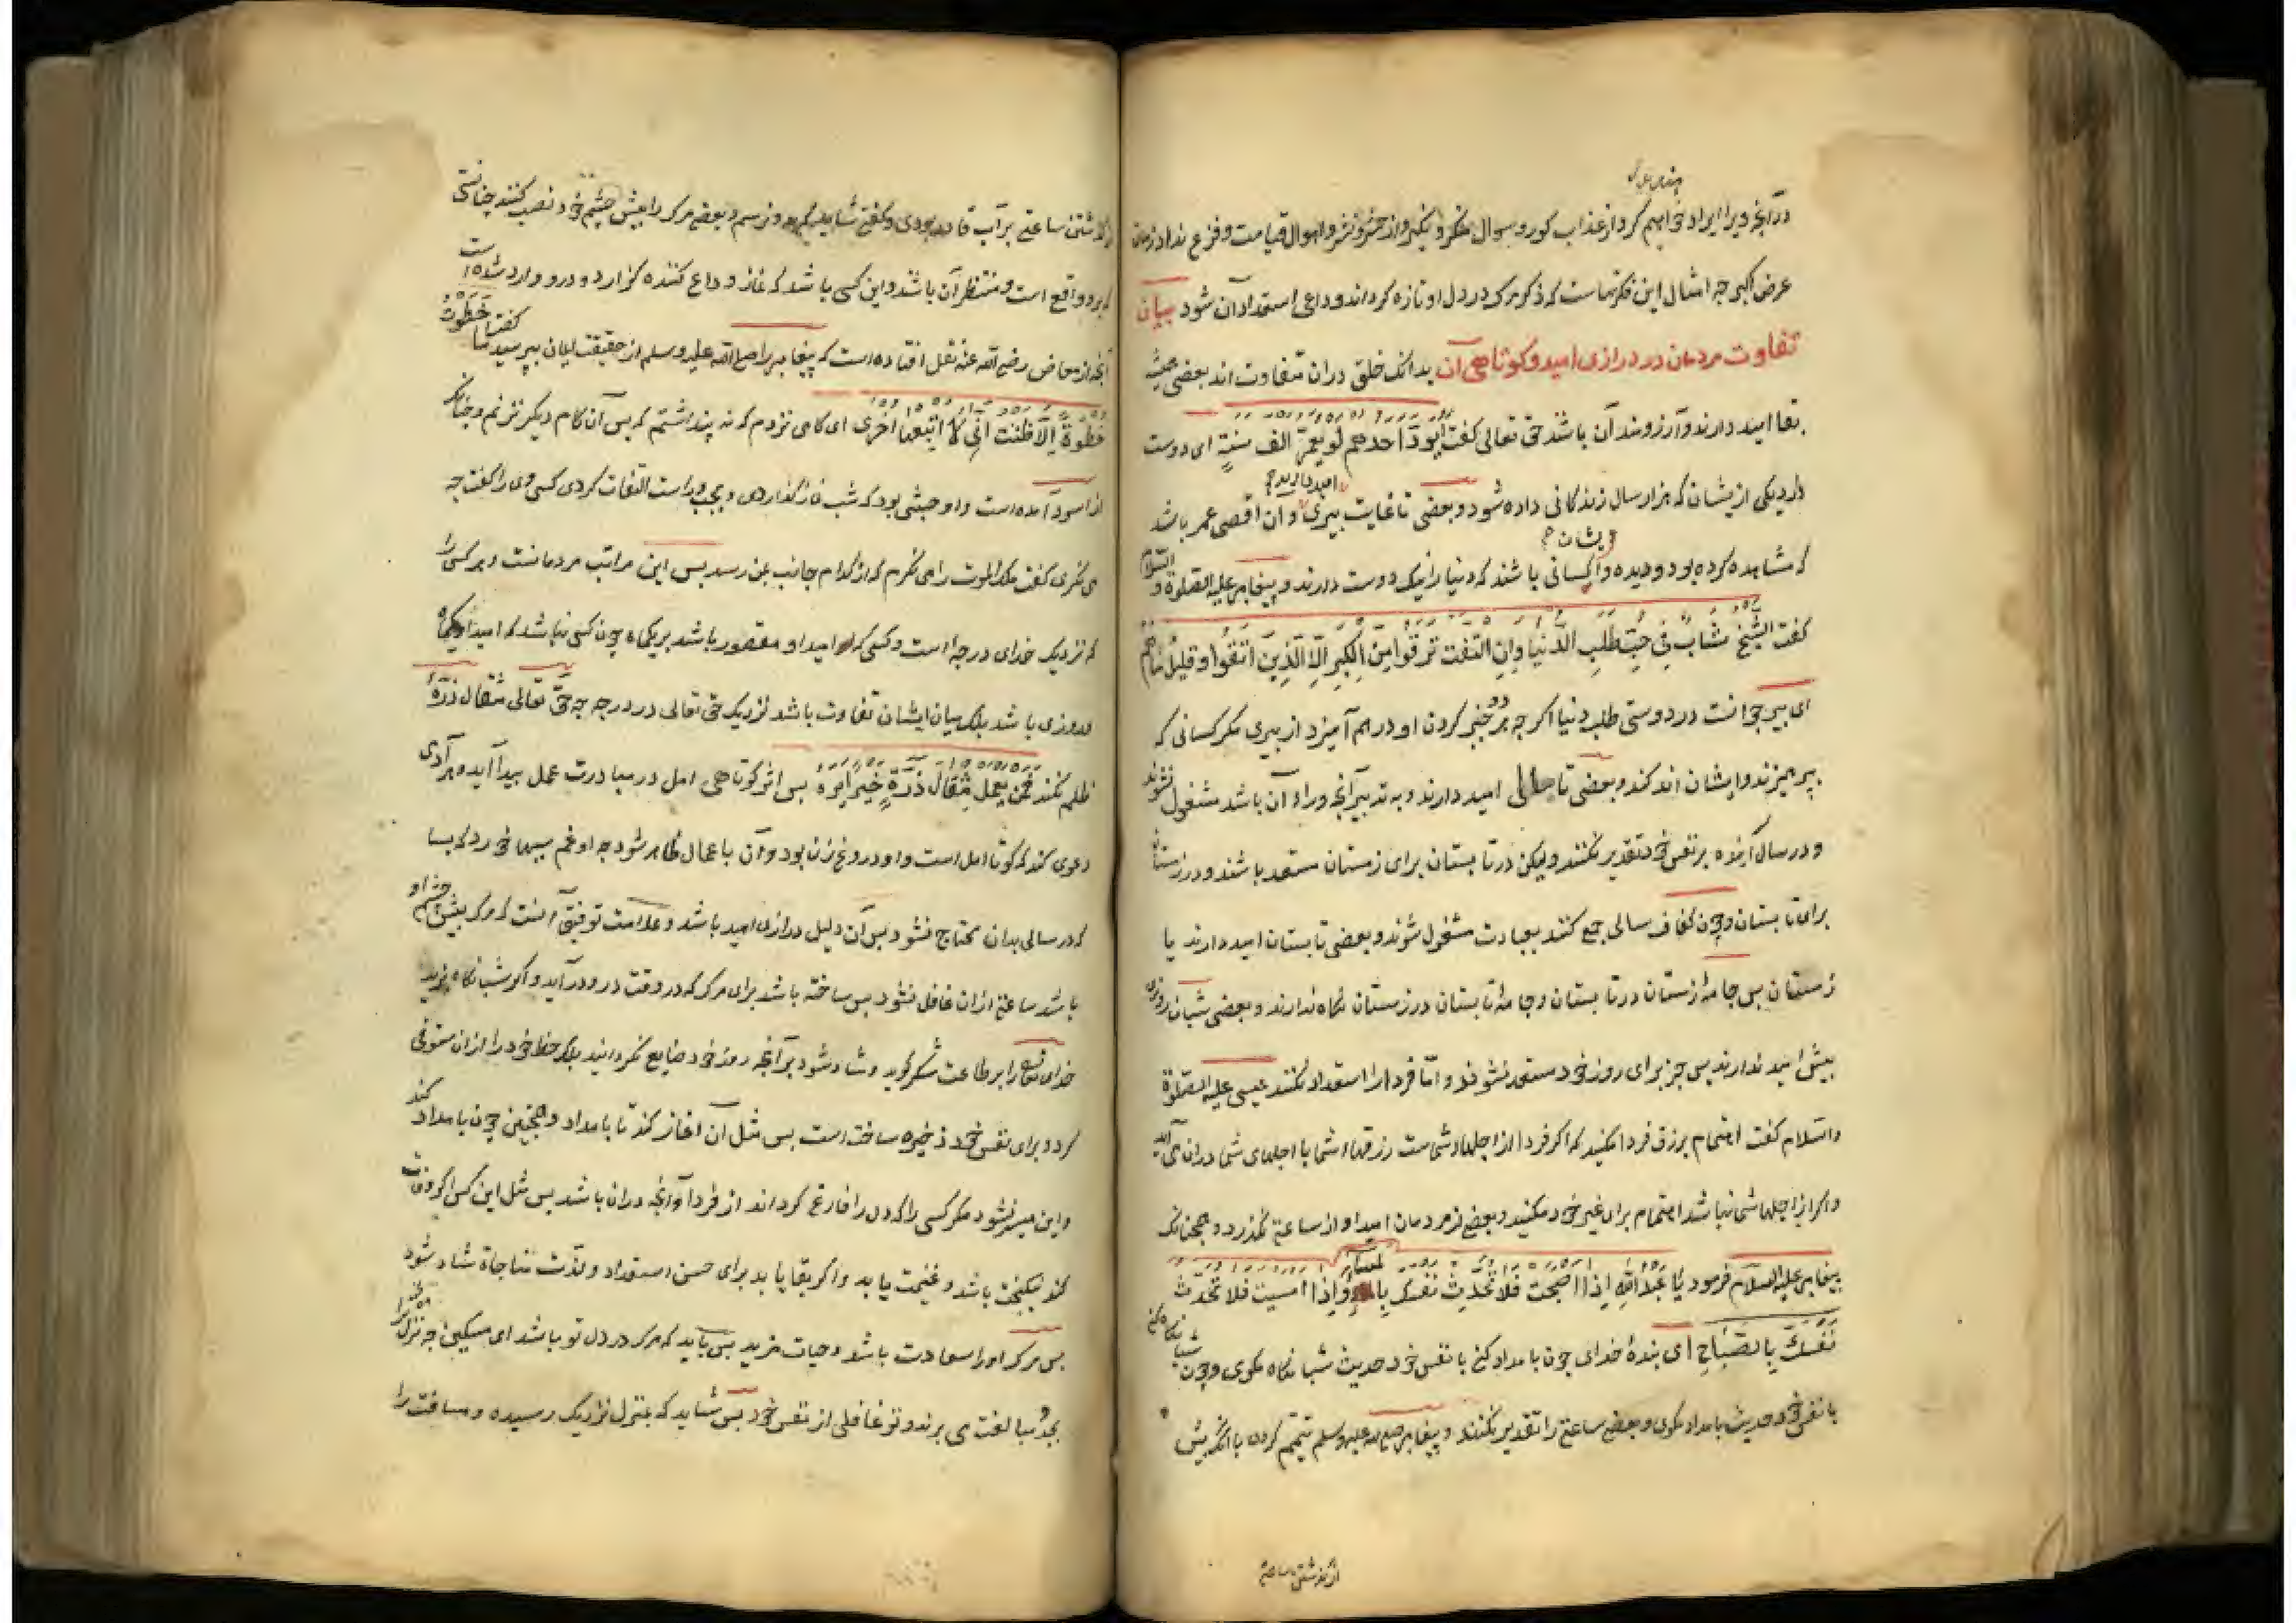 درآنچه ویرا ایراد خواهیم کرد از عذاب کور و سوال منکر و نکیر و از حشر و نشر و اهوال قیامت و فزع نداد زمان
عرض اکبر چه امثال این فکرتهاست که ذکر مرک در دل او تازه کرداند و داعی استعداد آن شود بیان
تفاوت مردمان در درازی امید و کوتاهی آن بدانک خلق دران متفاوت اند بعضی همیشه
بقا امید دارند و آرزومند آن باشند حق تعالی کفت یود احدهم لو یعمر الف سنة ای دوست
دارد یکی ازیشان که هزار سال زندکانی داده شود و بعضی تا غایت پیری امید دارند و ان اقصی عمر باشد
که مشاهده کرده بود و دیده و ایشان کسانی باشند که دنیا را نیک دوست دارند و پیغامبر علیه الصلوة و السلام
کفت الشیخ شاب فی حب طلب الدنیا وان التفت ترقوتا من الکبر الا الذین اتقوا وقلیل ما هم
ای پیر جوانست در دوستی طلب دنیا اکر چه دو چنبر کردن او درهم آمیزد از پیری مکر کسانی که
بپرهیزند و ایشان اندکند و بعضی تا سالی امید دارند و به تدبیر آنچه وراء آن باشد مشغول نشوند
و در سال آینده بر نفس خود تقدیر نکنند ولیکن در تابستان برای زمستان مستعد باشند و در زمستان
برای تابستان و چون کفاف سالی جمع کنند بعبادت مشغول شوند و بعضی تا تابستان امید دارند یا
زمستان بس جامهٔ زمستان در تابستان و جامهٔ تابستان در زمستان نکاه ندارند و بعضی شبان روزی
بیش امید ندارند بس جز برای روز خود مستعد نشوند و اما فردا را استعداد نکنند عیسی علیه الصلوة
والسلام کفت اهتمام برزق فردا مکنید که اکر فردا از اجلهاء شماست رزقهاء شما با اجلهای شما دران می آید
و اکر از اجلهاء شما نباشد اهتمام برای غیر خود مکنید و بعضی از مردمان امید او از ساعتی نکذرد و همچنانک
پیغامبر علیه السلام فرمود یا عبدالله اذا اصبحت فلا تحدث نفسک بالمساء واذا امسیت فلا تحدث
نفسک بالصباح ای بندهٔ خدای چون بامداد کنی با نفس خود حدیث شبانکاه مکوی و چون شبانکاه کنی
با نفس خود حدیث بامداد مکوی و بعضی ساعتی را تقدیر نکنند و پیغامبر صلی الله علیه وسلم تیمم کردی با آنک پیش
از کذشتن ساعتی
از کذشتن ساعتی بر آب قادر بودی و کفتی شاید که بدو نرسم و بعضی مرک را پیش چشم خود نصب کنند چنانستی
که بدو واقع است و منتظر آن باشد و این کسی باشد که نماز وداع کننده کزارد و درو وارد شده است
آنچه از معاذ رضی الله عنه نقل افتاده است که پیغامبر را صلی الله علیه وسلم از حقیقت ایمان بپرسید کفت ما خطوت
خطوة الا ظننت انی لا اتبعها اخری ای کامی نزدم که نه پنداشتم که بس آن کام دیکر نزنم و چنانک
از اسود آمده است و او حبشی بود که شب نماز کذاردی و بچپ و راست التفات کردی کسی وی را کفت چه
می نکری کفت ملک الموت را می نکرم که از کدام جانب بمن رسد بس این مراتب مردمانست و هر کسی را
که نزدیک خدای درجه است و کسی که امید او مقصور باشد بر یکماه چون کسی نباشد که امید او یکماه
و روزی باشد بلک میان ایشان تفاوت باشد نزدیک حق تعالی در درجه چه حق تعالی مثقال ذرهٔ
ظلم نکند فمن یعمل مثقال ذرة خیرا یره بس اثر کوتاهی امل در مبادرت عمل پیدا آید و هر آدمی
دعوی کند که کوتاه امل است و او دروغ زن بود و آن باعمال ظاهر شود چه او غم سببها خورد که بسا
که در سالی بدان محتاج نشود بس آن دلیل درازی امید باشد و علامت توفیق آنست که مرک پیش چشم او
باشد ساعتی ازان غافل نشود بس ساخته باشد برای مرک که در وقت درو درآید و اکر شبانکاه بزید
خدای تعالی را بر طاعت شکر کوید و شاد شود بر آنچه روز خود ضایع نکردانید بلک حظ خود را ازان مستوفی
کرد و برای نفس خود ذخیره ساخته است بس مثل آن آغاز کند تا بامداد و همچنین چون بامداد کند
و این میسر نشود مکر کسی را که دل را فارغ کرداند از فردا و آنچه دران باشد بس مثل این کس اکر وفات
کند نیکبخت باشد و غنیمت یابد و اکر بقا یابد برای حسن استعداد و لذت مناجاة شاد شود
بس مرک او را سعادت باشد و حیات مزید بس باید که مرک در دل تو باشد ای مسکین چه ترا
بجد و مبالغت می برند و تو غافلی از نفس خود بس شاید که بمنزل نزدیک رسیده و مسافت را